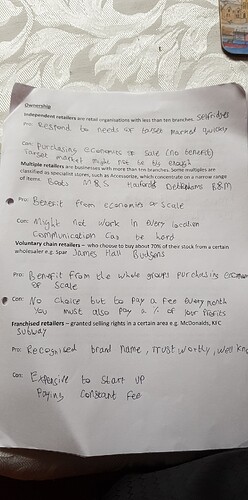 Ownership
Independent retailers are retail organisations with less than ten branches. Selfridges
Pro: Respond to needs of target market quickly
Con: Purchasing economies of sale (no benefit)
Target market might not be big enough
Multiple retailers are businesses with more than ten branches. Some multiples are
classified as specialist stores, such as Accessorize, which concentrate on a narrow range
of items. Boots M&S Halfords Debenhams B&M
Pro: Benefit from economies of scale
Con: Might not work in every location
Communication can be hard
Voluntary chain retailers – who choose to buy about 70% of their stock from a certain
wholesaler e.g. Spar James Hall Budgens
Pro: Benefit from the whole groups purchasing
of scale
Con: No choice but to pay a fee every month
You must also pay a % of your profits
Franchised retailers – granted selling rights in a certain area e.g. McDonalds, KFC
Subway
Pro: Recognised brand name, trustworthy, well
Con: Expensive to start up
Paying constant fee